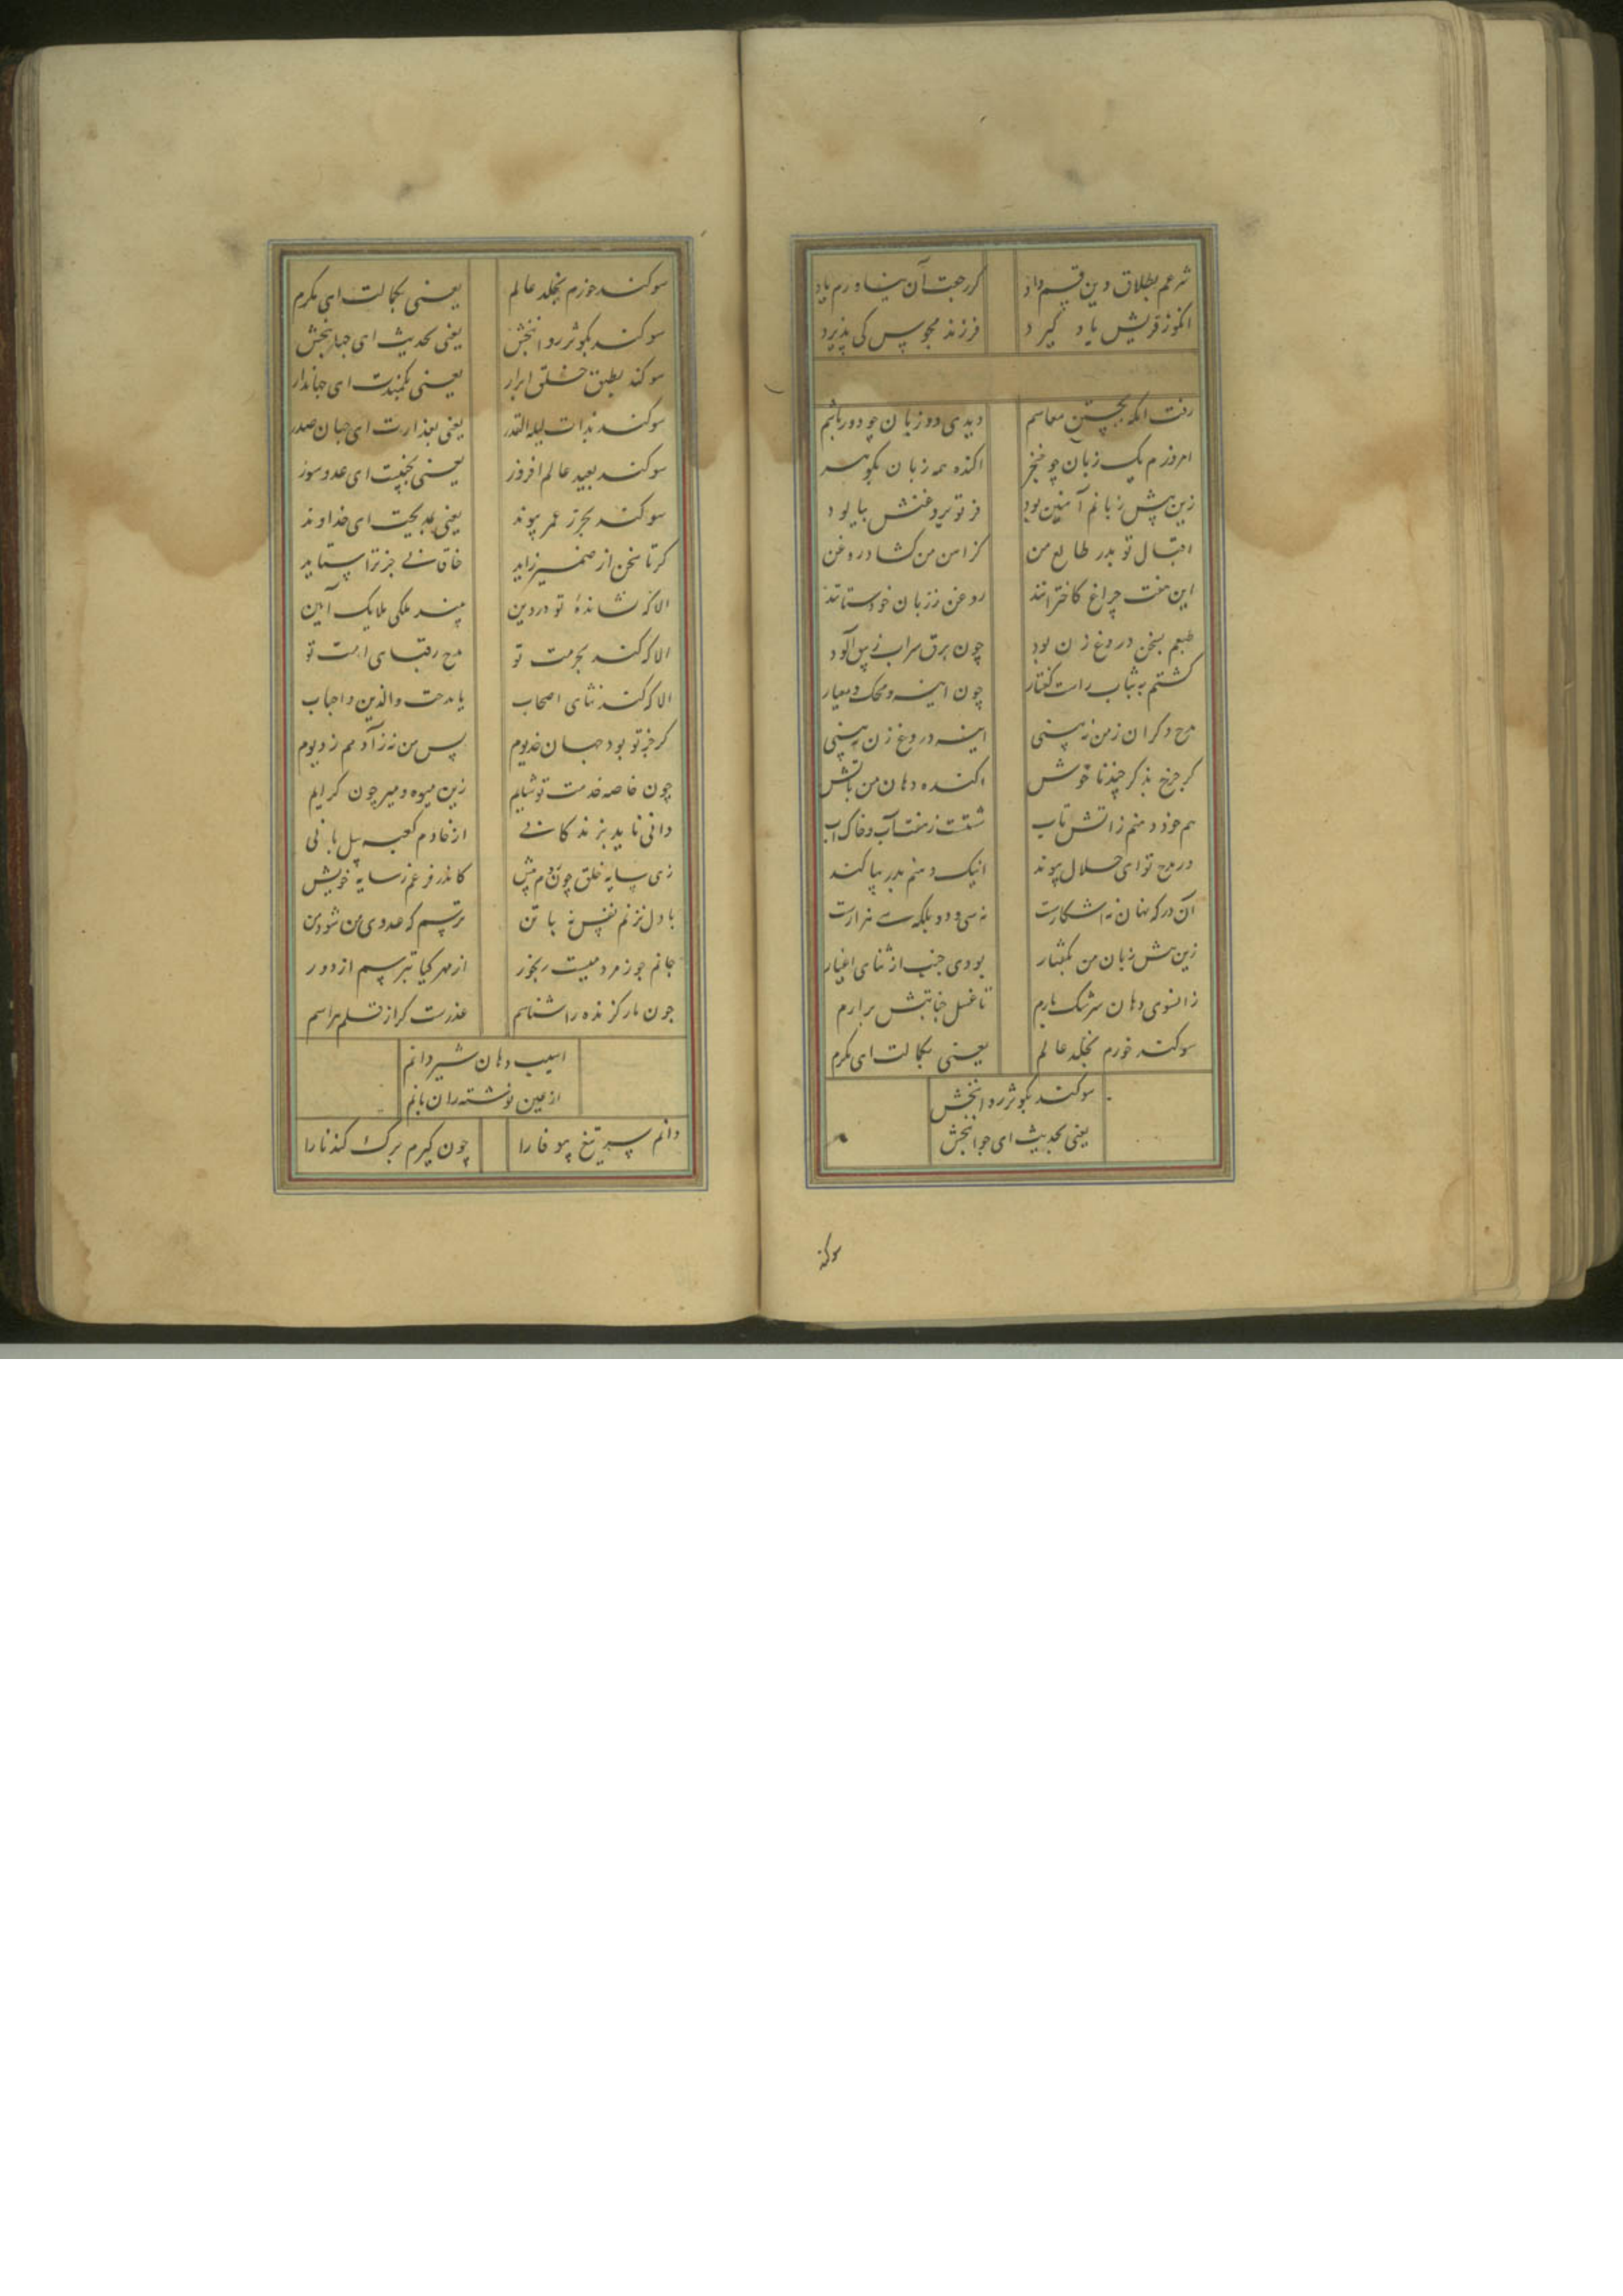 شرعم بطلاق دین قسم داد
کز رجعت آن نیاورم یاد
انکوز قریش یاد گیرد
فرزند مجوس کی پذیرد
رفت انکه بجستن معاسم
دیدی دو زبان چو دورباشم
امروزم یک زبان چو خنجر
اکنده همه زبان بکوهر
زین پیش زبانم آهنین بود
اقبال تو بدر طالع من
کز آهن من کشاد روغن
این هفت چراغ کاخترانند
روغن ززبان خود ستانند
طبعم بسخن دروغ زن بود
چون برق سراب زیبق آلود
کشتم راست کفتار
چون اینه و محک و معیار
مدح دکران زمن نه بینی
اینه دروغ زن نه بینی
کر چرخ بذکر چند ناخوش
اکنده دهان من باتش
هم خود دهنم زاتش تاب
شستت زهفت آب و خاک آب
در مدح تو ای حلال پیوند
اینک دهنم بدر بیاکند
آن در که نهان نه اشکارست
نه سی و دو بلکه سی هزارست
زین پیش زبان من بکفتار
بودی جنب از ثنای اغیار
زانسوی دهان سرشک بارم
تا غسل جنابتش برارم
سوکند خورم بخلد عالم
یعنی بکمالت ای مکرم
سوکند بکوثر روانبخش
یعنی بحدیث ای جوانبخش
سوکند
سوکند خورم بخلد عالم
یعنی بکمالت ای مکرم
سوکند بکوثر روانبخش
یعنی بحدیث ای جهانبخش
سوکند بطیق خلق ابرار
یعنی ای جهاندار
سوکند بذات لیله القدر
یعنی بعذارت ای جهان صدر
سوکند بعید عالم افروز
یعنی ای عدوسوز
سوکند بحرز عمر پیوند
یعنی ای خداوند
کرتا سخن از ضمیر زاید
خاقانی جز ترا ستاید
الا که نشانده تو در دین
بیند ملکی ملایک آیین
الا که کند بحرمت تو
مدح رقبای امت تو
الا که کند ثنای اصحاب
یا مدحت والدین و احباب
کر جز تو بود جهان خدیوم
پس من نه زآدمم زدیوم
چون خاصه خدمت تو شایم
زین میوه و میر چون کرایم
دانی ناید بزندکانی
از خادم کعبه پیل بانی
زی سایه خلق چون دوم پیش
کاندر فزعم زسایه خویش
با دل نزنم نفس نه با تن
ترسم که عدوی من شود من
جانم چو زمردمیست رنجور
از مهرکیا بترسم از دور
چون مار کزنده را شناسم
عذرست کر از قلم هراسم
اسیب دهان شیر دانم
از عین نوشته ران بانم
دانم سپر تیغ بیوفا را
چون کیرم برک کندنا را